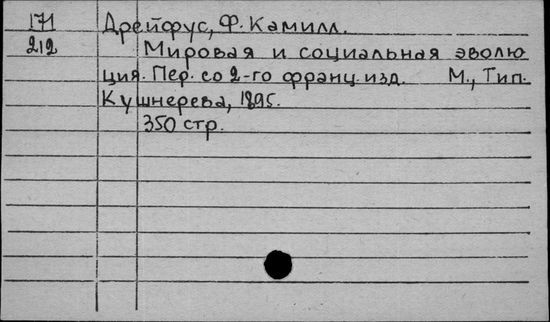 171 Дрейфус, Ф. Камилл.
212 Мировая и социальная эволю
ция. Пер. со 2-го франц. изд. М., Тип.
Кушнерева, 1895.
350 стр.